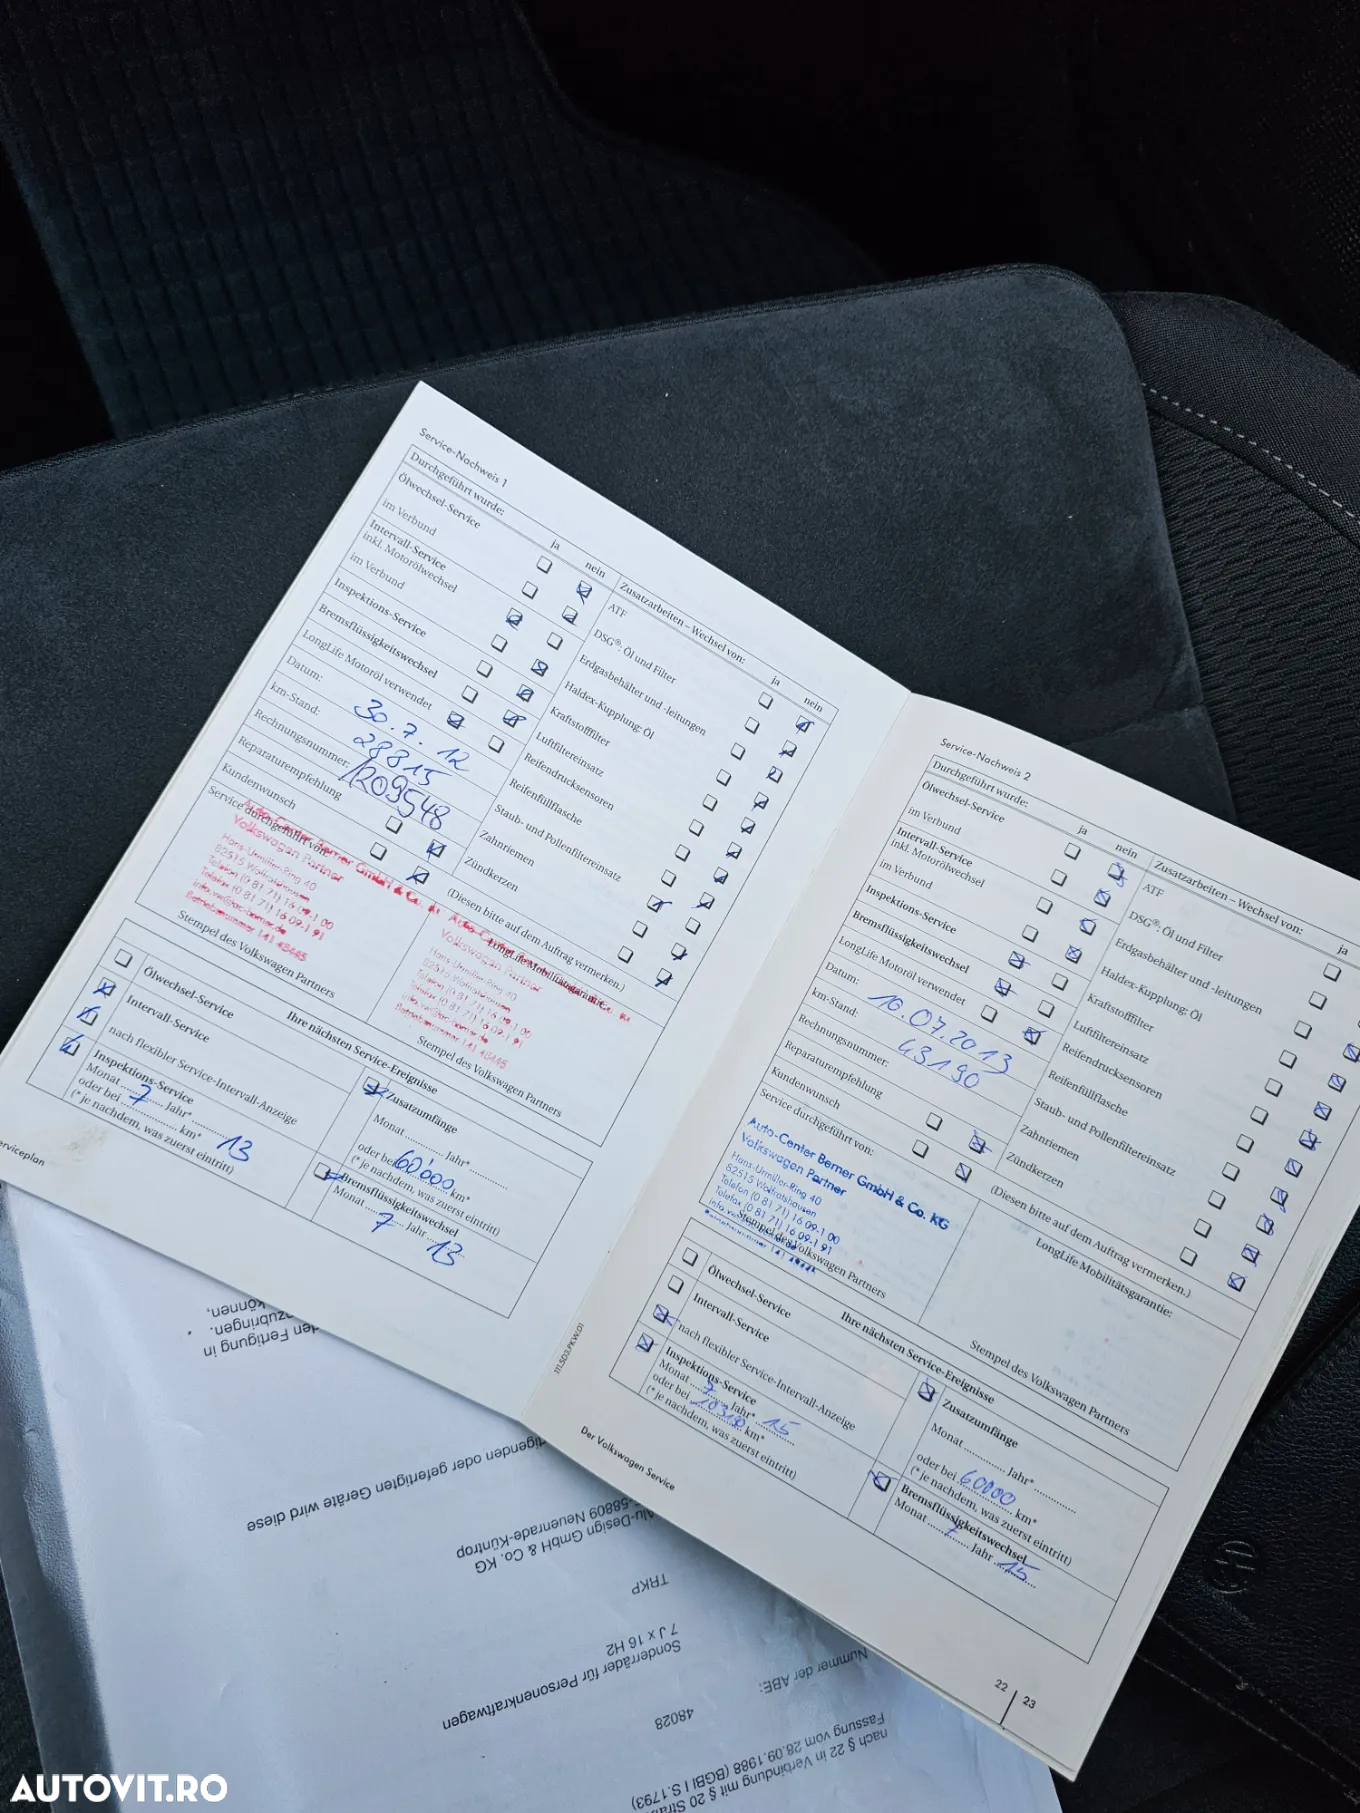 Service-Nachweis 1
Durchgeführt wurde:
ja
nein
Ölwechsel-Service
im Verbund
Intervall-Service
inkl. Motorölwechsel
im Verbund
Inspektions-Service
Bremsflüssigkeitswechsel
LongLife Motoröl verwendet
Datum: 30.7.12
km-Stand: 28815
Rechnungsnummer: 1209548
Reparaturempfehlung
Kundenwunsch
Service durchgeführt von:
Auto-Center Berner GmbH & Co. KG
Volkswagen Partner
Hans-Urmiller-Ring 40
82515 Wolfratshausen
Telefon (0 81 71) 16 09-1 00
Telefax (0 81 71) 16 09-1 91
Betriebsnummer 141 48445
Stempel des Volkswagen Partners
Zusatzarbeiten – Wechsel von:
ja
nein
ATF
DSG®: Öl und Filter
Erdgasbehälter und -leitungen
Haldex-Kupplung: Öl
Kraftstofffilter
Luftfiltereinsatz
Reifendrucksensoren
Reifenfüllflasche
Staub- und Pollenfiltereinsatz
Zahnriemen
Zündkerzen
(Diesen bitte auf dem Auftrag vermerken.)
LongLife Mobilitätsgarantie:
Auto-Center Berner GmbH & Co. KG
Volkswagen Partner
Hans-Urmiller-Ring 40
82515 Wolfratshausen
Telefon (0 81 71) 16 09-1 00
Telefax (0 81 71) 16 09-1 91
Betriebsnummer 141 48445
Stempel des Volkswagen Partners
Ihre nächsten Service-Ereignisse
Ölwechsel-Service
Intervall-Service
nach flexibler Service-Intervall-Anzeige
Inspektions-Service
Monat 7 Jahr* 13
oder bei km*
(* je nachdem, was zuerst eintritt)
Zusatzumfänge
Monat Jahr*
oder bei 60'000 km*
(* je nachdem, was zuerst eintritt)
Bremsflüssigkeitswechsel
Monat 7 Jahr 13
erviceplan
Service-Nachweis 2
Durchgeführt wurde:
ja
nein
Ölwechsel-Service
im Verbund
Intervall-Service
inkl. Motorölwechsel
im Verbund
Inspektions-Service
Bremsflüssigkeitswechsel
LongLife Motoröl verwendet
Datum: 10.07.2013
km-Stand: 43190
Rechnungsnummer:
Reparaturempfehlung
Kundenwunsch
Service durchgeführt von:
Auto-Center Berner GmbH & Co. KG
Volkswagen Partner
Hans-Urmiller-Ring 40
82515 Wolfratshausen
Telefon (0 81 71) 16 09-1 00
Telefax (0 81 71) 16 09-1 91
Stempel des Volkswagen Partners
Zusatzarbeiten – Wechsel von:
ja
ATF
DSG®: Öl und Filter
Erdgasbehälter und -leitungen
Haldex-Kupplung: Öl
Kraftstofffilter
Luftfiltereinsatz
Reifendrucksensoren
Reifenfüllflasche
Staub- und Pollenfiltereinsatz
Zahnriemen
Zündkerzen
(Diesen bitte auf dem Auftrag vermerken.)
LongLife Mobilitätsgarantie:
Stempel des Volkswagen Partners
Ihre nächsten Service-Ereignisse
Ölwechsel-Service
Intervall-Service
nach flexibler Service-Intervall-Anzeige
Inspektions-Service
Monat 7 Jahr* 15
oder bei km*
(* je nachdem, was zuerst eintritt)
Zusatzumfänge
Monat Jahr*
oder bei 60000 km*
(* je nachdem, was zuerst eintritt)
Bremsflüssigkeitswechsel
Monat 7 Jahr 15
111.5D3.PKW.01
Der Volkswagen Service
22 | 23
nach § 20 Straß
nach § 22 in Verbindung mit
Fassung vom 28.09.1988 (BGBl I S.1793)
Nummer der ABE:
48028
Sonderräder für Personenkraftwagen
7 J x 16 H2
TRKP
Alu-Design GmbH & Co. KG
58809 Neuenrade-Küntrop
tigenden oder gefertigten Geräte wird diese
den Fertigung in
nzubringen.
können,
AUTOVIT.RO